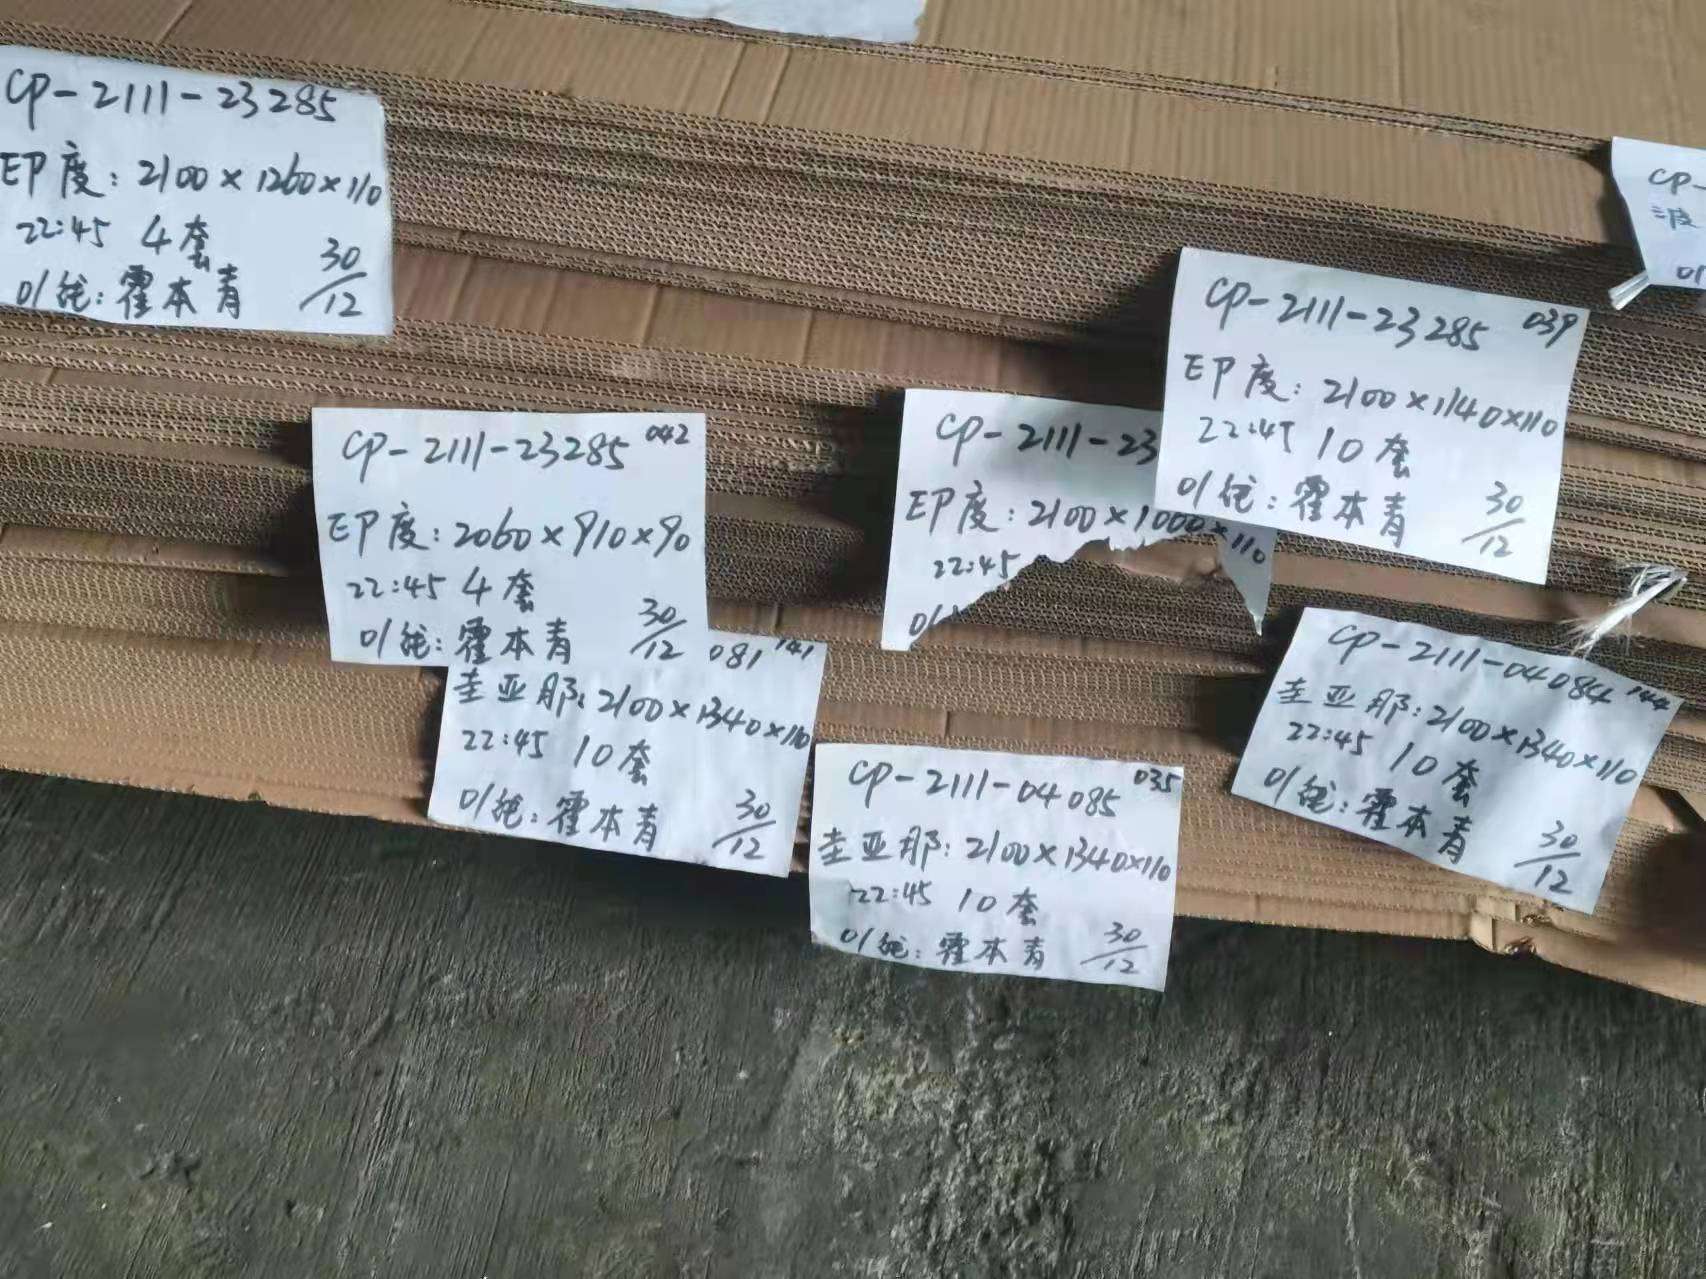 CP-2111-23285
印度:2100×1260×110
22:45 4套
霍本青 30/12
CP-2111-23285 042
印度:2060×910×90
22:45 4套
霍本青 30/12
081 141
圭亚那:2100×1340×110
22:45 10套
霍本青 30/12
CP-2111-23
印度:2100×1000×110
22:45
CP-2111-23285 039
印度:2100×1140×110
22:45 10套
霍本青 30/12
CP-2111-04085 035
圭亚那:2100×1340×110
22:45 10套
霍本青 30/12
CP-2111-04084 144
圭亚那:2100×1340×110
22:45 10套
霍本青 30/12
CP-
波